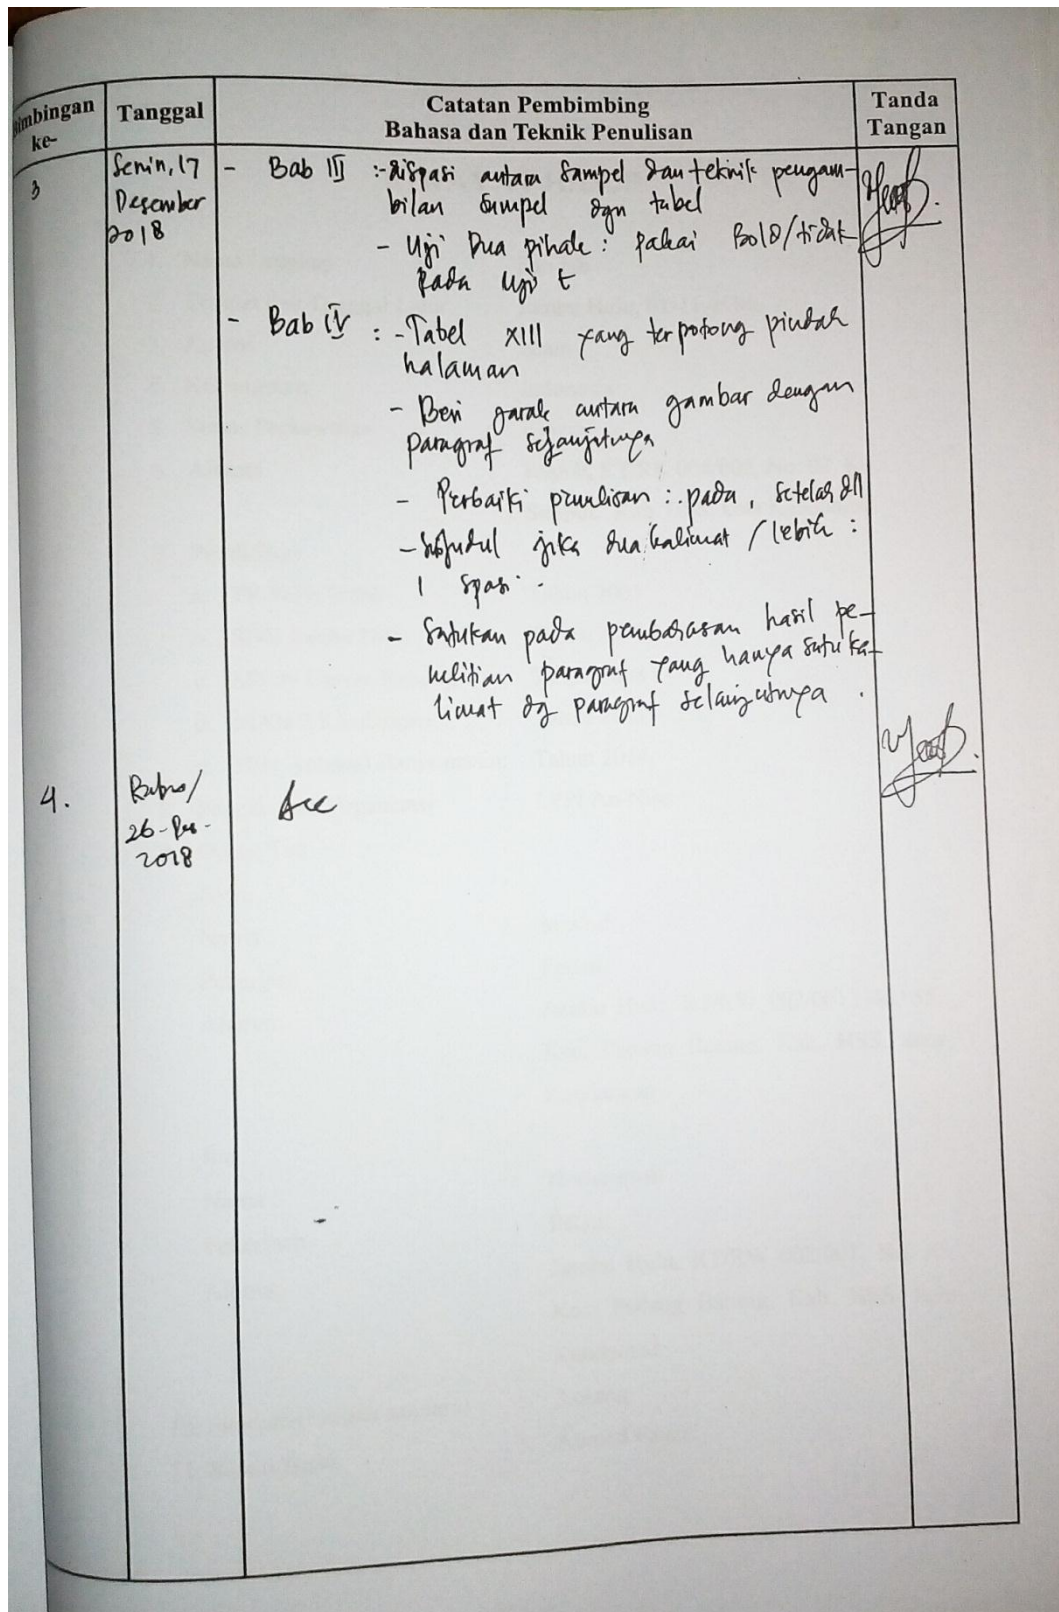 Bimbingan
ke-
Tanggal
Catatan Pembimbing
Bahasa dan Teknik Penulisan
Tanda
Tangan
3
Senin, 17
Desember
2018
- Bab III :- dispasi antara sampel dan teknik pengam-
bilan sampel dgn tabel
- Uji Dua pihak : pakai Bold/tidak
pada uji t
- Bab IV : - Tabel XIII yang terpotong pindah
halaman
- Beri jarak antara gambar dengan
paragraf selanjutnya
- Perbaiki penulisan : pada, setelah dll
- Subjudul jika dua kalimat / lebih :
1 spasi.
- Satukan pada pembahasan hasil pe-
nelitian paragraf yang hanya satu ka-
limat dg paragraf selanjutnya.
4.
Rabu/
26-Des-
2018
Acc